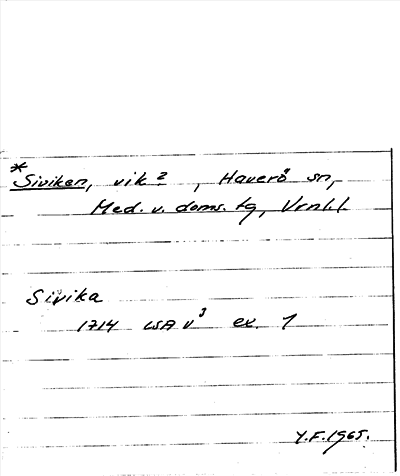 *Siviken, vik?, Haverö sn,
Med. v. doms. tg, Vrnl.
Sivika
1714 LSA V³ ex. 1
Y.F. 1965.